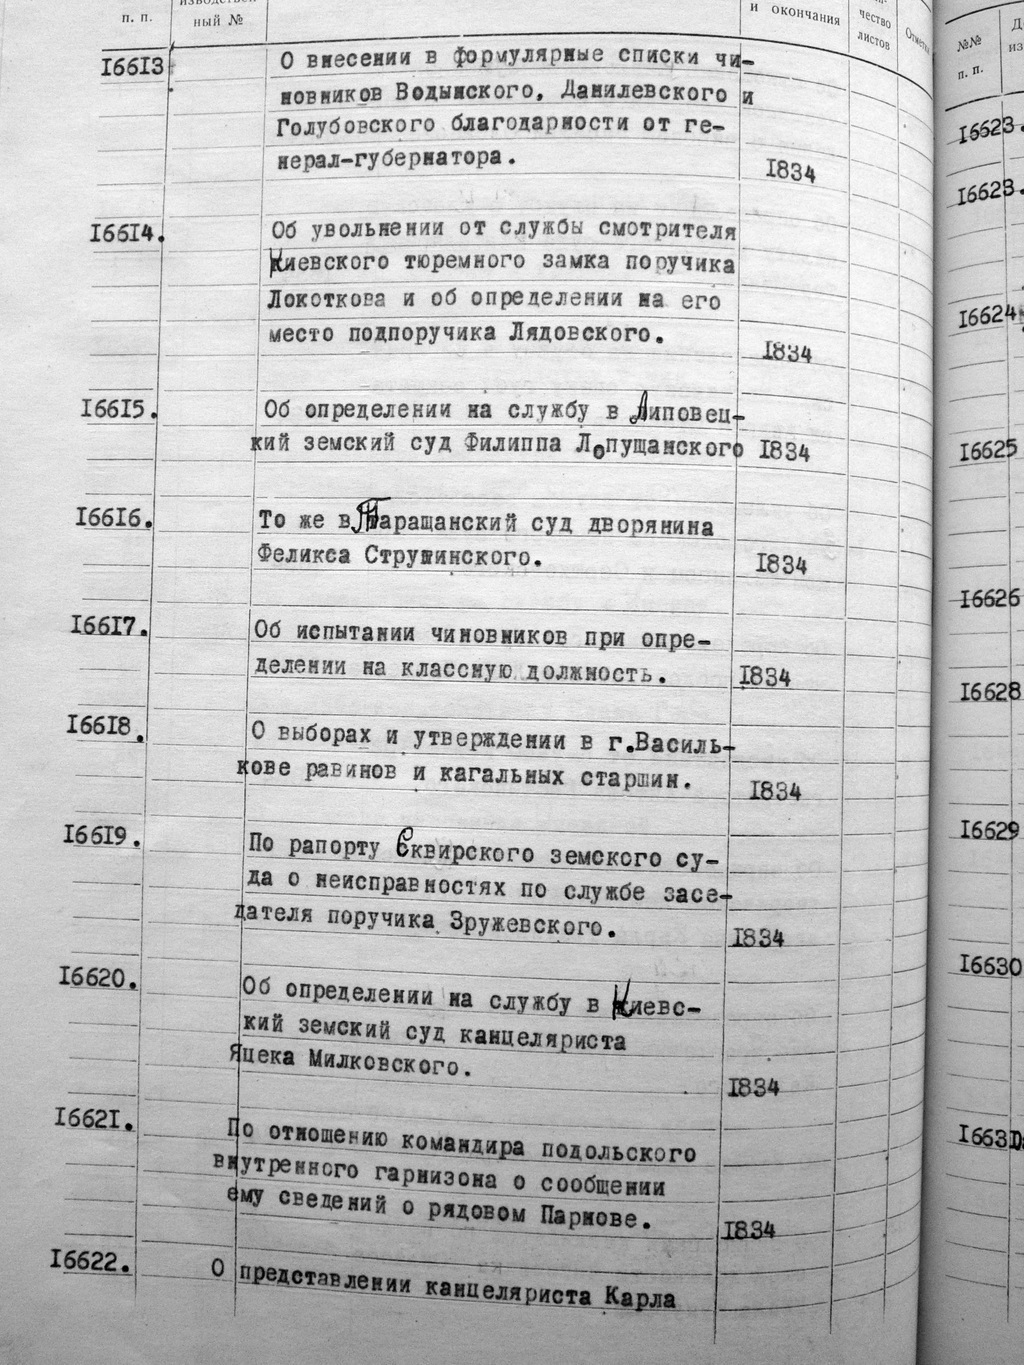 п. п.
ный №
и окончания
чество
листов
16613
О внесении в формулярные списки чи-
новников Водынского, Данилевского и
Голубовского благодарности от ге-
нерал-губернатора.
1834
16614.
Об увольнении от службы смотрителя
Киевского тюремного замка поручика
Локоткова и об определении на его
место подпоручика Лядовского.
1834
16615.
Об определении на службу в Липовец-
кий земский суд Филиппа Лопущанского 1834
16616.
То же в Таращанский суд дворянина
Феликса Струшинского.
1834
16617.
Об испытании чиновников при опре-
делении на классную должность.
1834
16618.
О выборах и утверждении в г.Василь-
кове равинов и кагальных старшин.
1834
16619.
По рапорту Сквирского земского су-
да о неисправностях по службе засе-
дателя поручика Зружевского.
1834
16620.
Об определении на службу в Киевс-
кий земский суд канцеляриста
Яцека Милковского.
1834
16621.
По отношению командира подольского
внутреннего гарнизона о сообщении
ему сведений о рядовом Парнове.
1834
16622.
О представлении канцеляриста Карла
№№
п. п.
16623.
16623.
16624
16625
16626
16628
16629
16630
1663